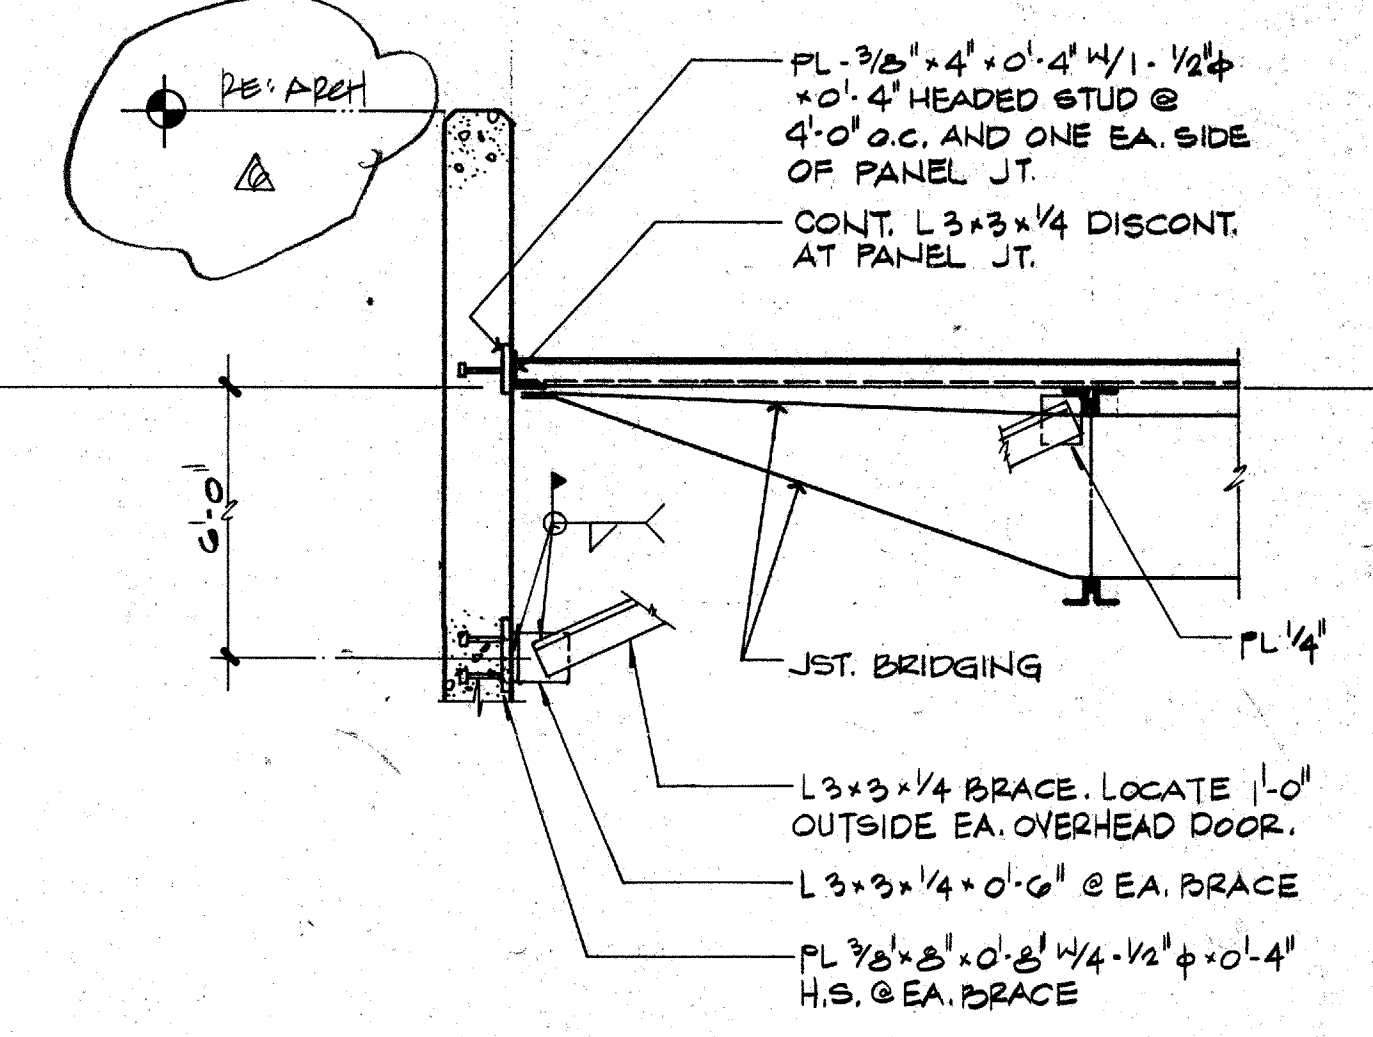 RE: ARCH
PL - 3/8" x 4" x 0'-4" W/1 - 1/2"ϕ
x 0'-4" HEADED STUD @
4'-0" O.C. AND ONE EA. SIDE
OF PANEL JT.
CONT. L 3x3x1/4 DISCONT.
AT PANEL JT.
6'-0"
PL 1/4"
JST. BRIDGING
L 3x3x1/4 BRACE. LOCATE 1'-0"
OUTSIDE EA. OVERHEAD DOOR.
L 3x3x1/4 x 0'-6" @ EA. BRACE
PL 3/8' x 8" x 0'-8" W/4 - 1/2" ϕ x 0'-4"
H.S. @ EA. BRACE